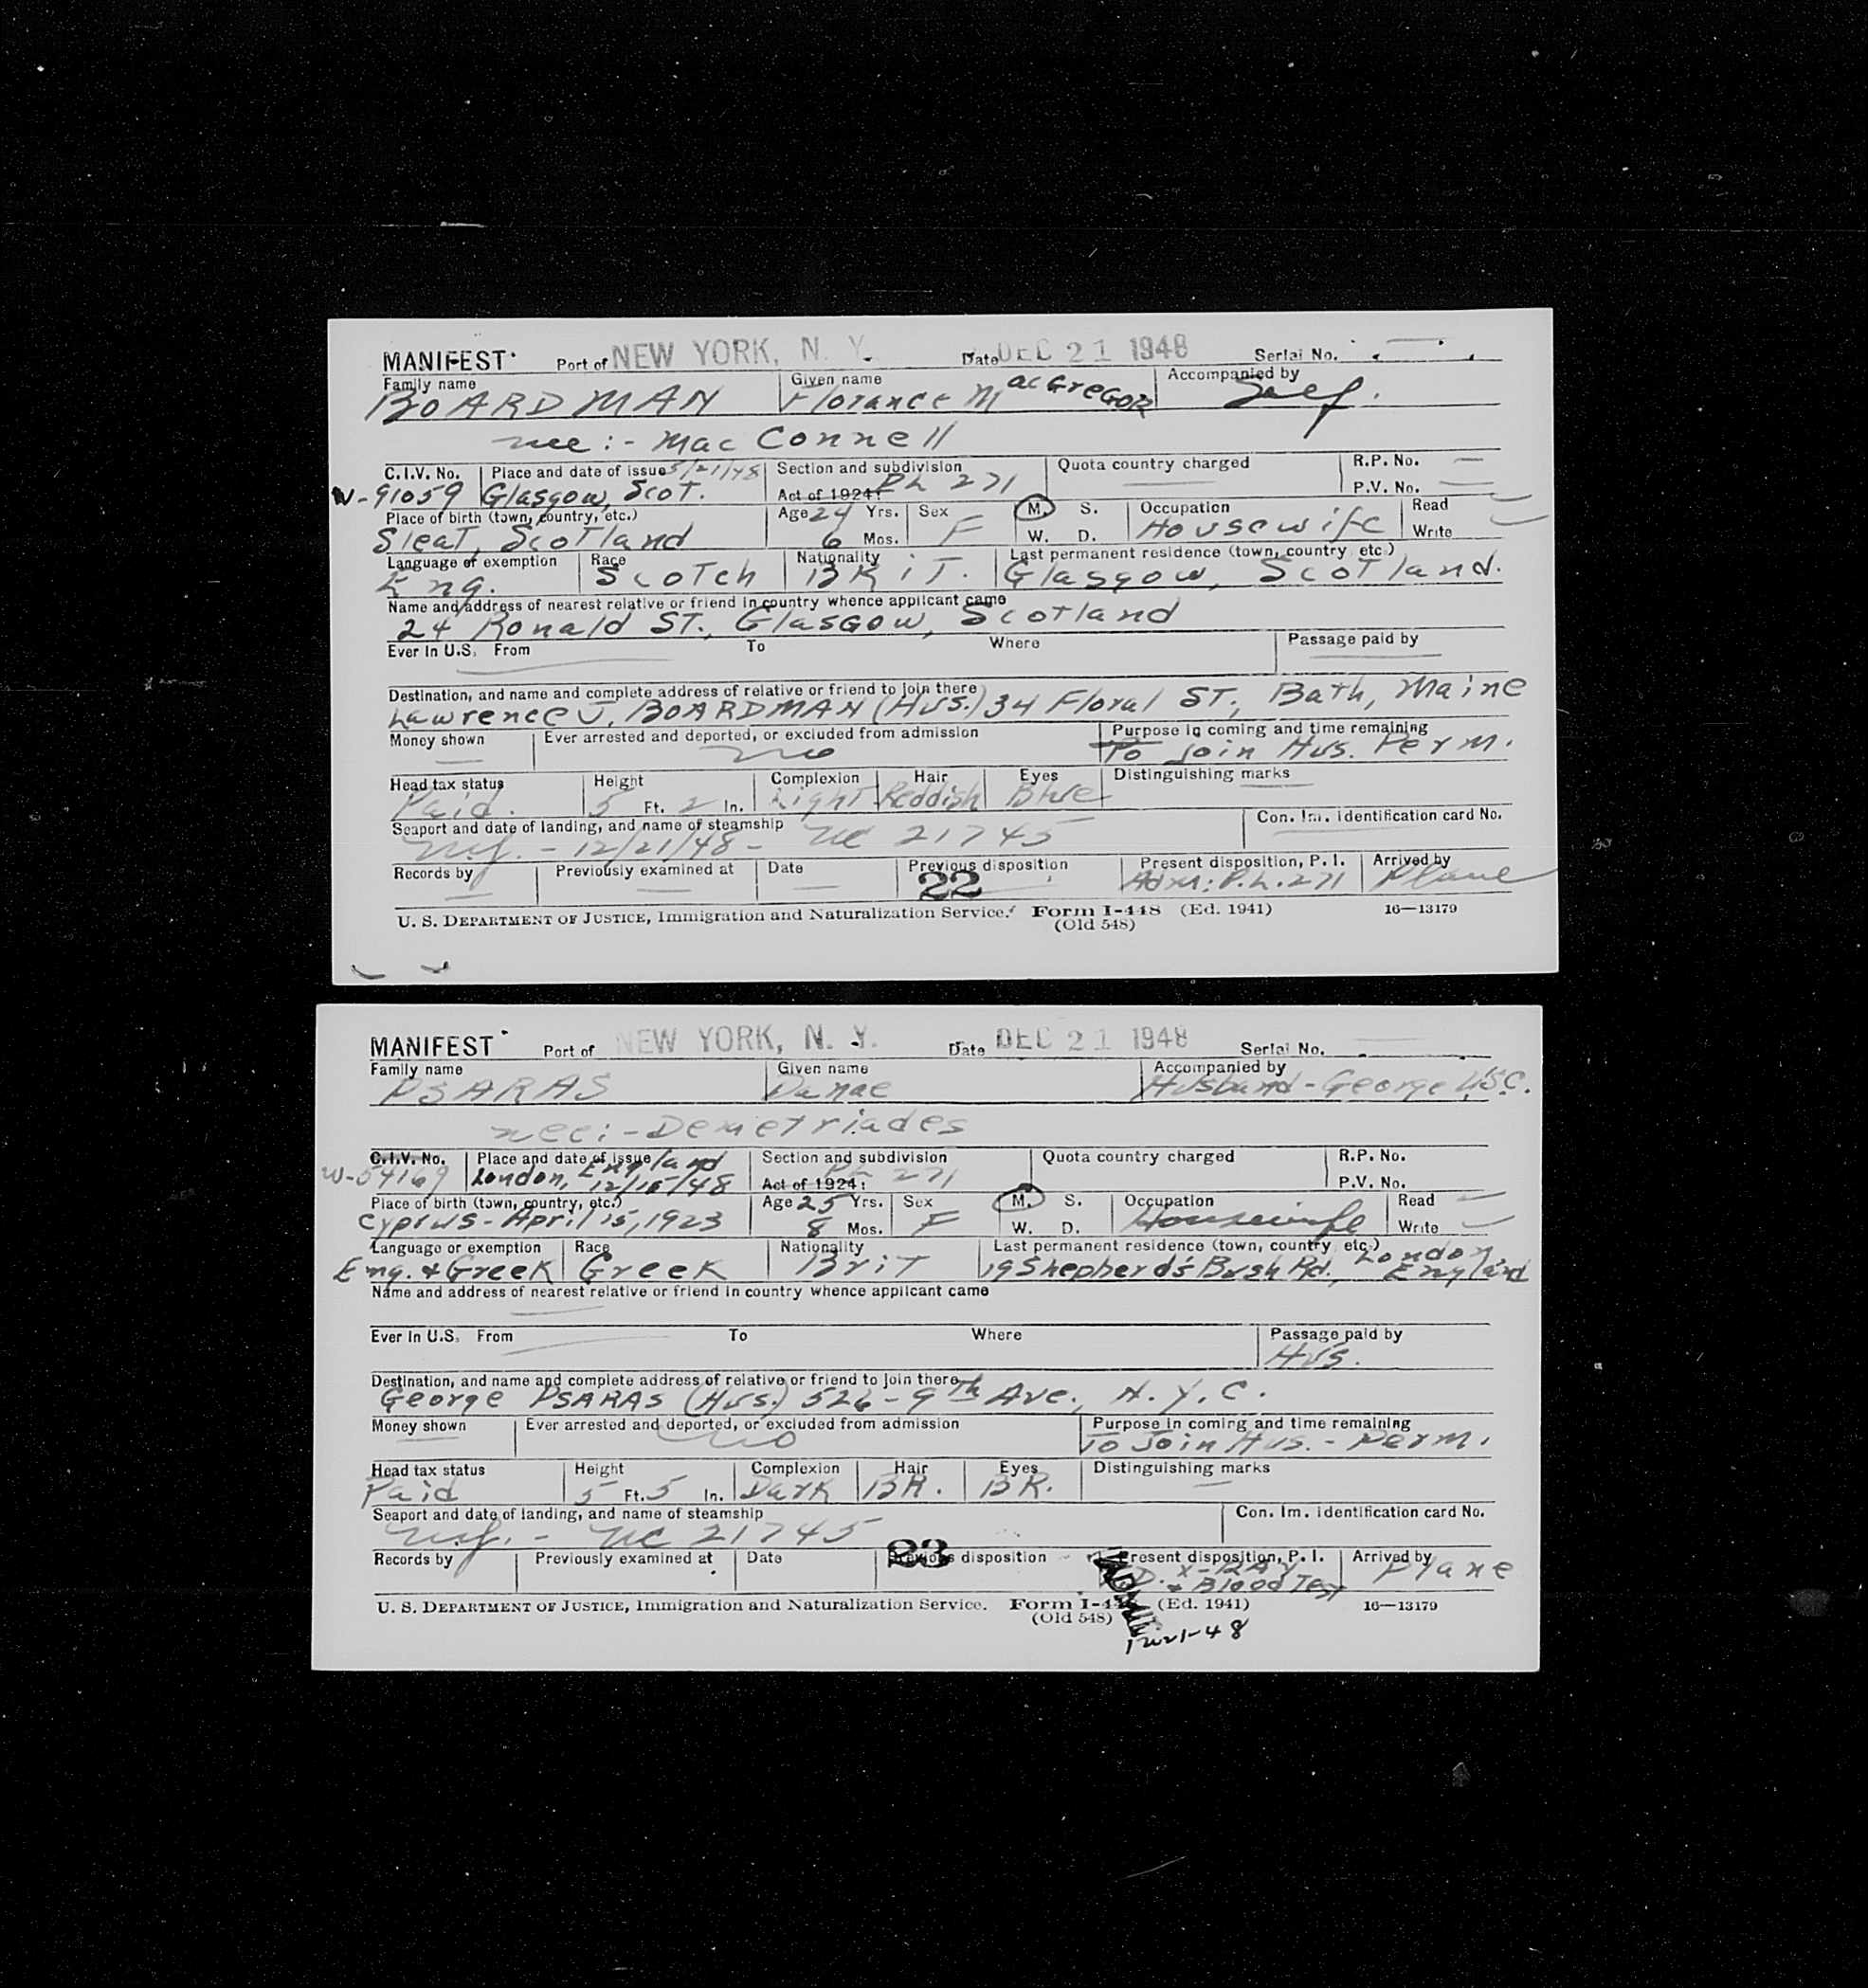 MANIFEST Port of NEW YORK, N. Y. Date DEC 21 1948 Serial No.
Family name Given name Accompanied by
BOARDMAN Florance MacGREGOR Self.
nee:- MacConnell
C.I.V. No. Place and date of issue 5/21/48 Section and subdivision Quota country charged R.P. No.
W-91059 Glasgow, Scot. Act of 1924: PL 271 P.V. No.
Place of birth (town, country, etc.) Age 24 Yrs. Sex M. S. Occupation Read
Sleat, Scotland 6 Mos. F W. D. Housewife Write
Language or exemption Race Nationality Last permanent residence (town, country etc.)
Eng. Scotch BRIT. Glasgow, Scotland.
Name and address of nearest relative or friend in country whence applicant came
24 Ronald ST., Glasgow, Scotland
Ever in U.S. From To Where Passage paid by
Destination, and name and complete address of relative or friend to join there
Lawrence J. BOARDMAN (Hus.) 34 Floral ST., Bath, Maine
Money shown Ever arrested and deported, or excluded from admission Purpose in coming and time remaining
no To join Hus. Perm.
Head tax status Height Complexion Hair Eyes Distinguishing marks
Paid. 5 Ft. 2 In. Light Reddish Blue
Seaport and date of landing, and name of steamship Con. Im. identification card No.
N.Y. - 12/21/48 - NC 21745
Records by Previously examined at Date Previous disposition Present disposition, P. I. Arrived by
22 Adm: P.L. 271 Plane
U. S. DEPARTMENT OF JUSTICE, Immigration and Naturalization Service. Form I-448 (Ed. 1941) 16—13179
(Old 548)
MANIFEST Port of NEW YORK, N. Y. Date DEC 21 1948 Serial No.
Family name Given name Accompanied by
PSARAS Danae Husband - George U.S.C.
nee:- Demetriades
C.I.V. No. Place and date of issue England Section and subdivision Quota country charged R.P. No.
W-54169 London, 12/15/48 Act of 1924: PL 271 P.V. No.
Place of birth (town, country, etc.) Age 25 Yrs. Sex M. S. Occupation Read
Cyprus - April 15, 1923 8 Mos. F W. D. Housewife Write
Language or exemption Race Nationality Last permanent residence (town, country etc.)
Eng. & Greek Greek Brit 19 Shepherd's Bush Rd., London England
Name and address of nearest relative or friend in country whence applicant came
Ever in U.S. From To Where Passage paid by
Hus.
Destination, and name and complete address of relative or friend to join there
George PSARAS (Hus.) 526 - 9th Ave., N.Y.C.
Money shown Ever arrested and deported, or excluded from admission Purpose in coming and time remaining
no To Join Hus. - Perm.
Head tax status Height Complexion Hair Eyes Distinguishing marks
Paid 5 Ft. 5 In. Dark BR. BR.
Seaport and date of landing, and name of steamship Con. Im. identification card No.
N.Y. - NC 21745
Records by Previously examined at Date Previous disposition Present disposition, P. I. Arrived by
23 X-RAY & Blood Test Plane
U. S. DEPARTMENT OF JUSTICE, Immigration and Naturalization Service. Form I-448 (Ed. 1941) 16—13179
(Old 548)
12-21-48